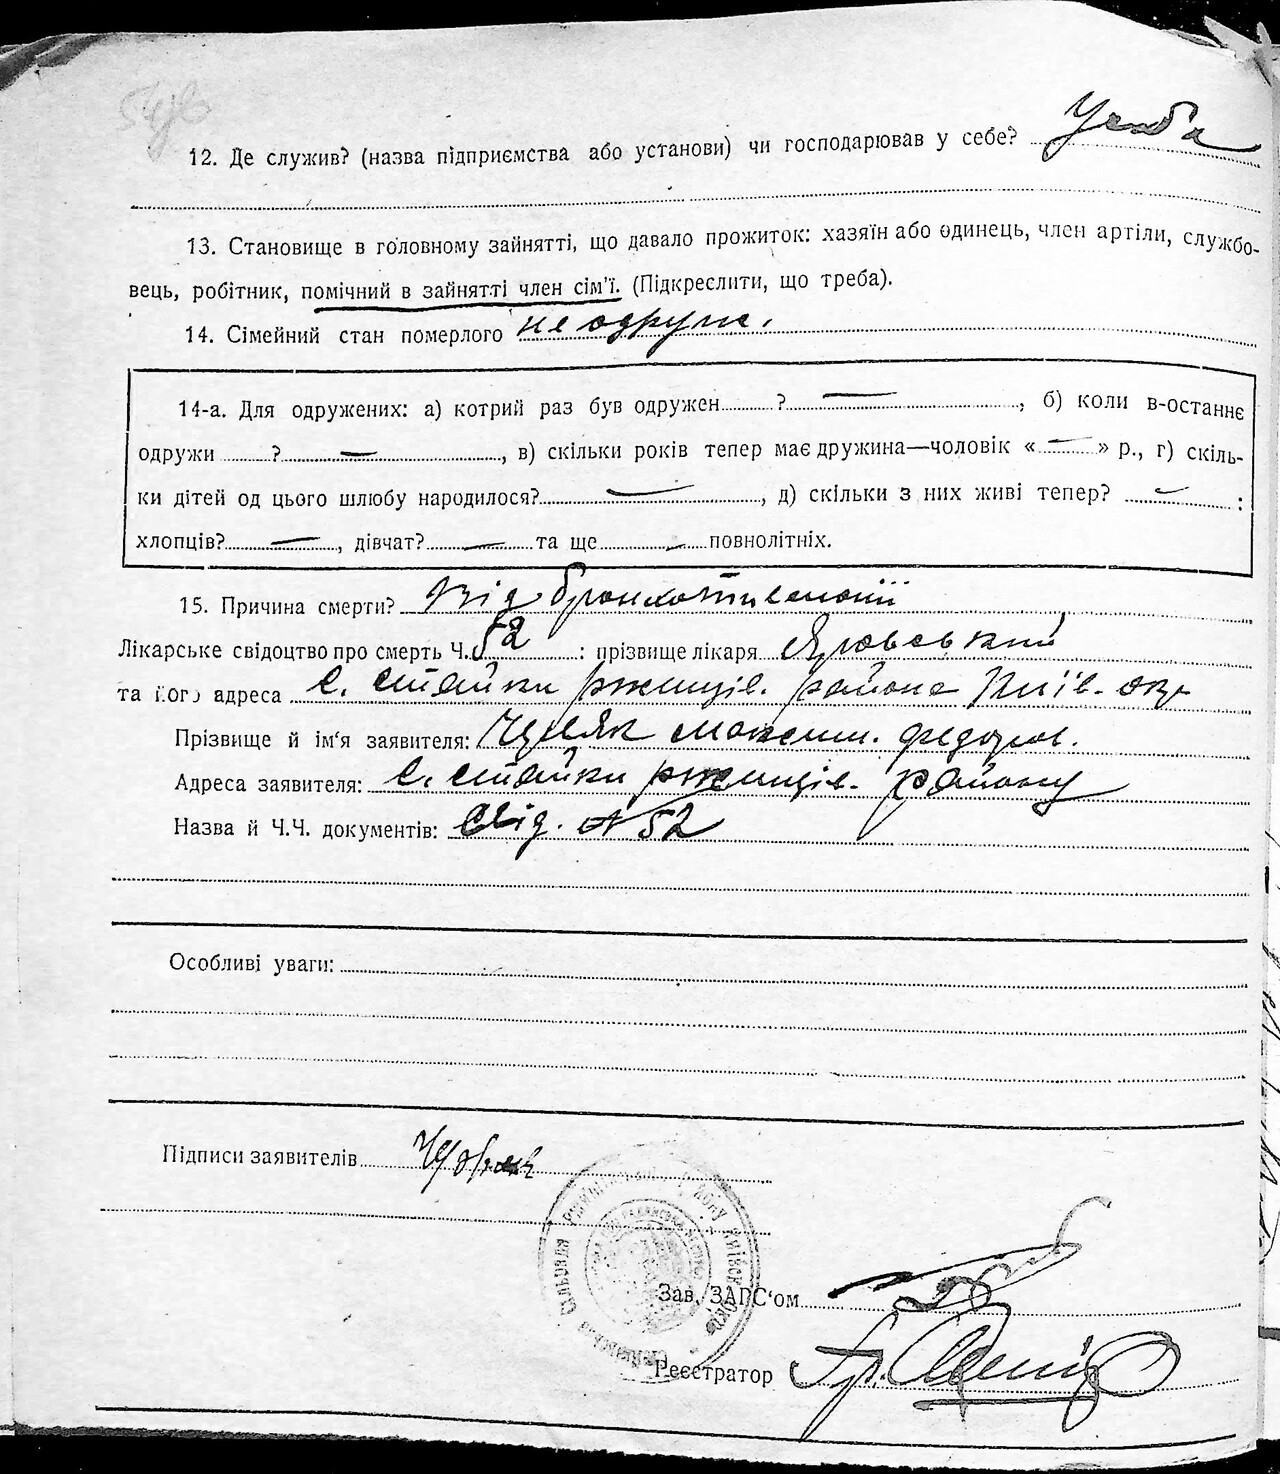 12. Де служив? (назва підприємства або установи) чи господарював у себе?
13. Становище в головному зайнятті, що давало прожиток: хазяїн або одинець, член артіли, службо-
вець, робітник, помічний в зайнятті член сім'ї. (Підкреслити, що треба).
14. Сімейний стан померлого не одруж.
14-а. Для одружених: а) котрий раз був одружен ? —, б) коли в-останнє
одружи ? —, в) скільки років тепер має дружина—чоловік « — » р., г) скіль-
ки дітей од цього шлюбу народилося? —, д) скільки з них живі тепер? — :
хлопців? —, дівчат? — та ще — повнолітніх.
15. Причина смерти? Від бронхопневмонії
Лікарське свідоцтво про смерть Ч. 52 : прізвище лікаря
та його адреса с. Стайки ржищів. района Київ. окр
Прізвище й ім'я заявителя: Максим. Федоров.
Адреса заявителя: с. Стайки ржищів. району
Назва й Ч.Ч. документів: Свід. № 52
Особливі уваги:
Підписи заявителів
Зав. ЗАГС'ом
Реєстратор